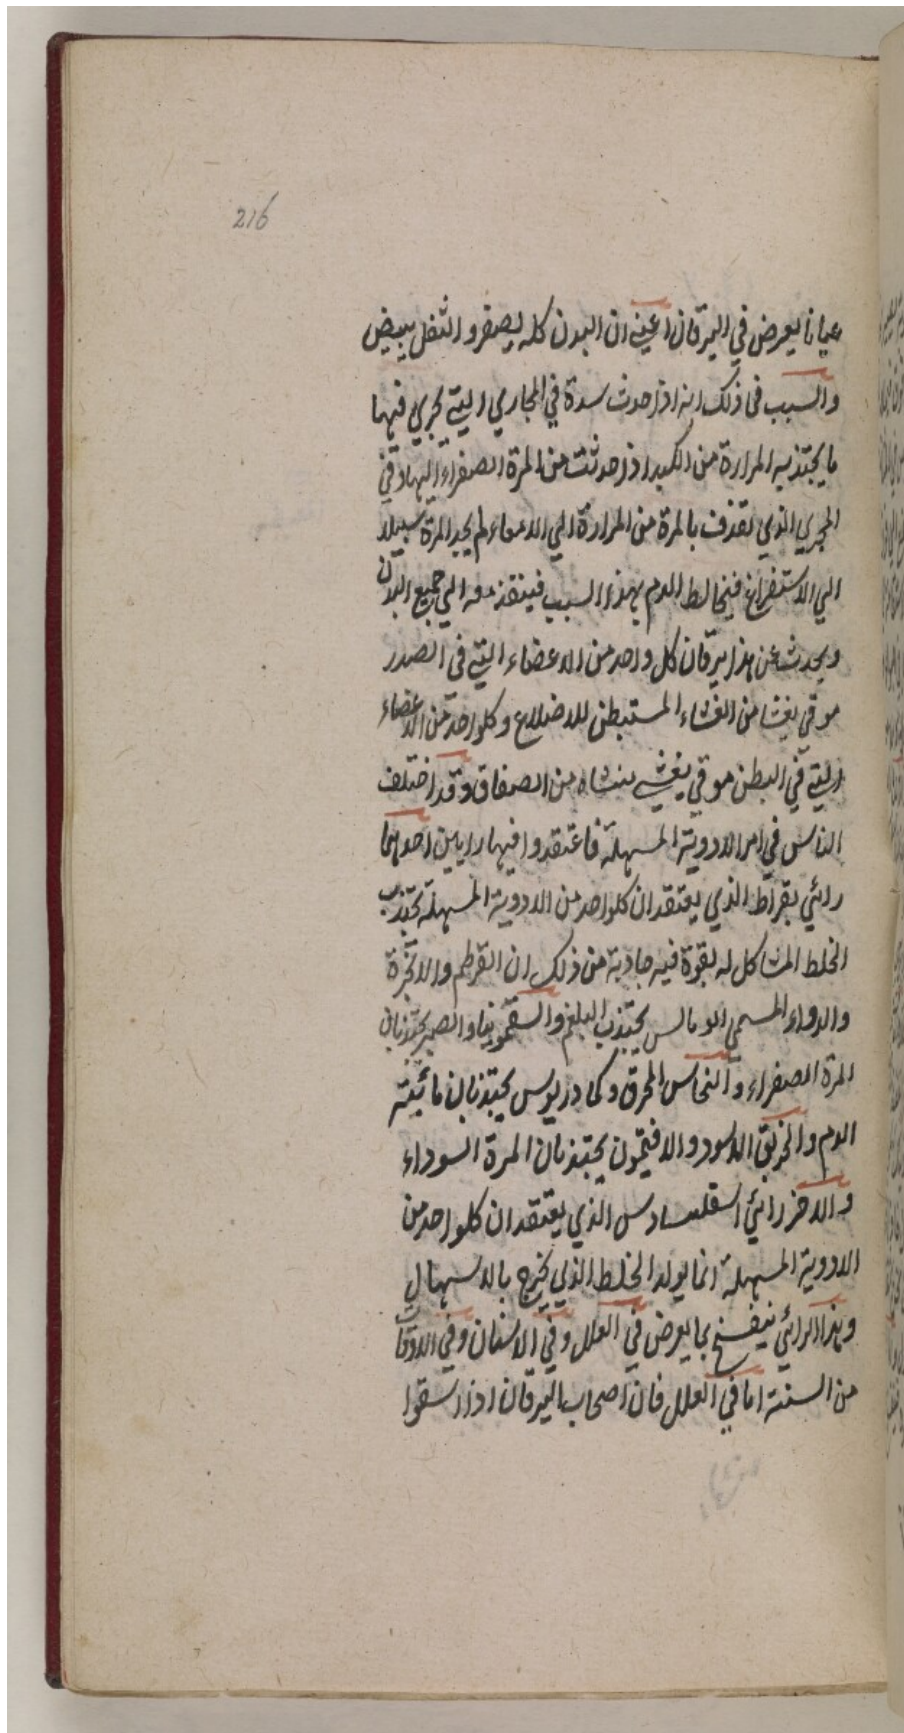 216
عيانا يعرض في اليرقان اعني ان البدن كله يصفر والثفل يبيض
والسبب في ذلك انه اذا حدث سدة في المجاري التي تجري فيها
ما يجتذبه المرارة من الكبد اذا حدثت من المرة الصفراء اليها وفي
المجري الذي تقذف بالمرة من المرارة الي الامعاء لم يجد المرة سبيلا
الي الاستفراغ فيخالط الدم بهذا السبب فينفذ معه الي جميع البدن
ويحدث عن هذا يرقان كل واحد من الاعضاء التي في الصدر
موقي بغشا من الغشاء المستبطن للاضلاع وكلواحد من الاعضاء
التي في البطن موقي بغشي بنشاه من الصفاق وقد اختلف
الناس في امر الادوية المسهلة فاعتقدوا فيها رايين احدهما
رائي بقراط الذي يعتقد ان كلواحد من الادوية المسهلة تجتذب
الخلط المشاكل له بقوة فيه جاذبة من ذلك ان القرطم والانجرة
والدواء المسمي الومالس يجتذب البلغم والسقمونيا والصبر يجتذبان
المرة الصفراء والنحاس المحرق وكمادريوس يجتذبان مائية
الدم والخربق الاسود والافيتمون يجتذبان المرة السوداء
والاخر رائي اسقلساوس الذي يعتقد ان كلواحد من
الادوية المسهلة انما يولد الخلط الذي يخرج بالاسهال
وهذا الرائي ينفسخ بما يعرض في العلل وفي الاسنان وفي الاوقات
من السنة اما في العلل فان اصحاب اليرقان اذا سقوا